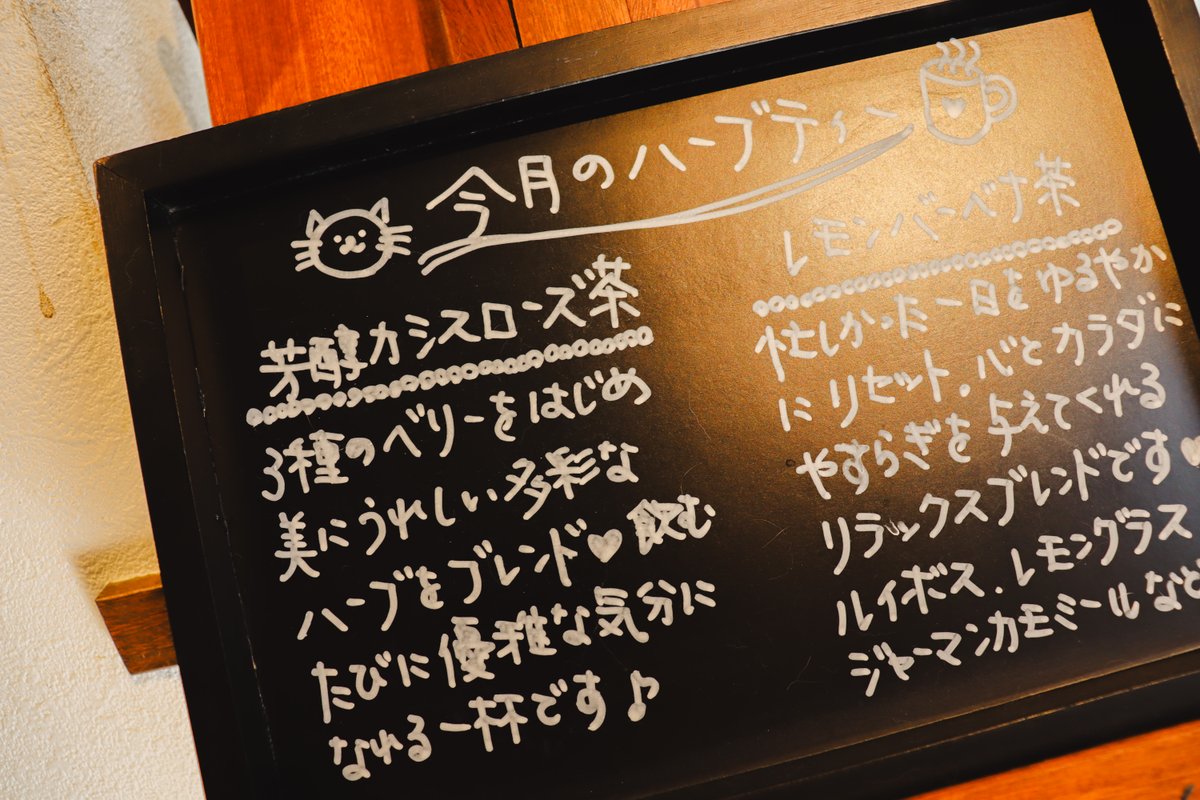 今月のハーブティー
芳醇カシスローズ茶
3種のベリーをはじめ
美にうれしい多彩な
ハーブをブレンド♥飲む
たびに優雅な気分に
なれる一杯です♪
レモンバーベナ茶
忙しかった一日をゆるやか
にリセット.心とカラダに
やすらぎを与えてくれる
リラックスブレンドです♥
ルイボス.レモングラス
ジャーマンカモミールなど